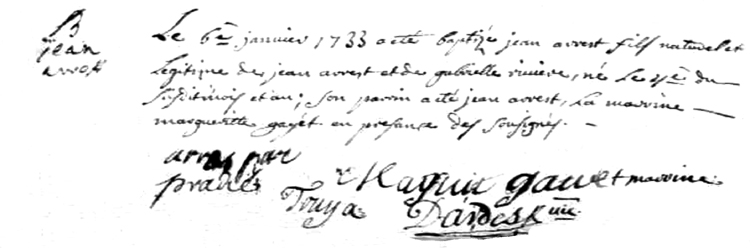 B
jean
arrest
Le 6e janvier 1733 a eté baptizé jean arrest fils naturel et
legitime de jean arrest et de gabrielle riviere, né le 4e du
susdit mois et an; son parrin a eté jean arrest, la marrine
marguerite gayet en presance des sousignés.
arres par
prades Touya Dardes
marrine